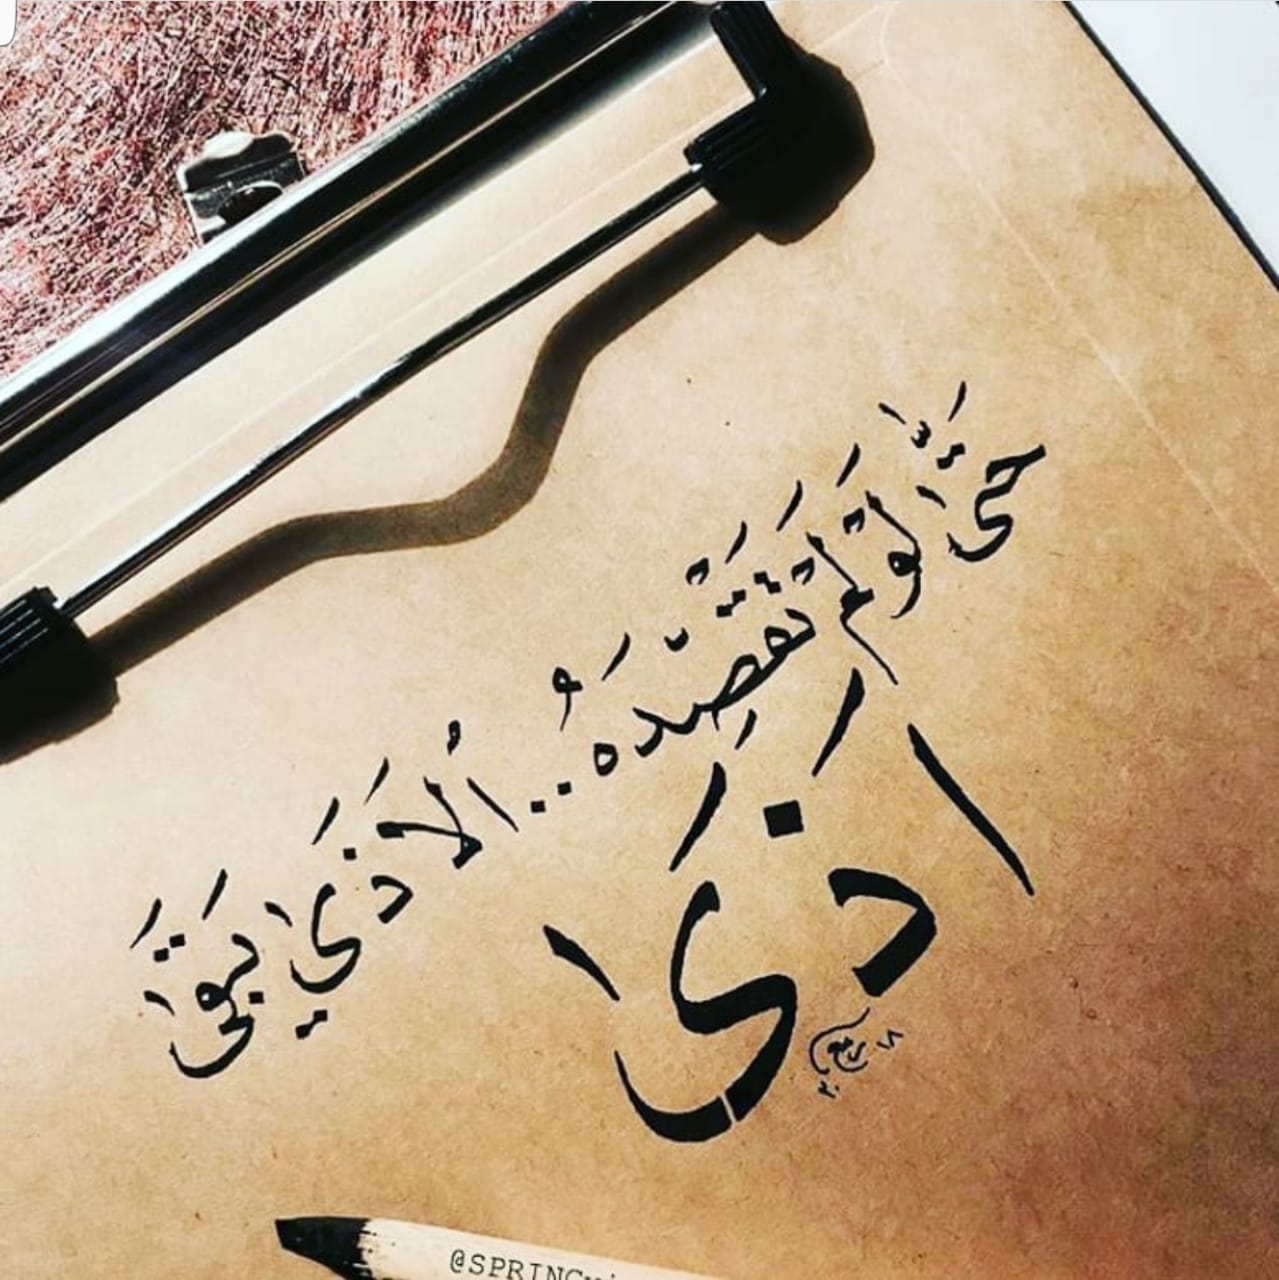 حَتَّىٰ لَوْ لَمْ تَقْصُدْهُ.. الْأَذَى يَبْقَىٰ
أَذَىٰ
ربيع
١٨
٢٠
@SPRING